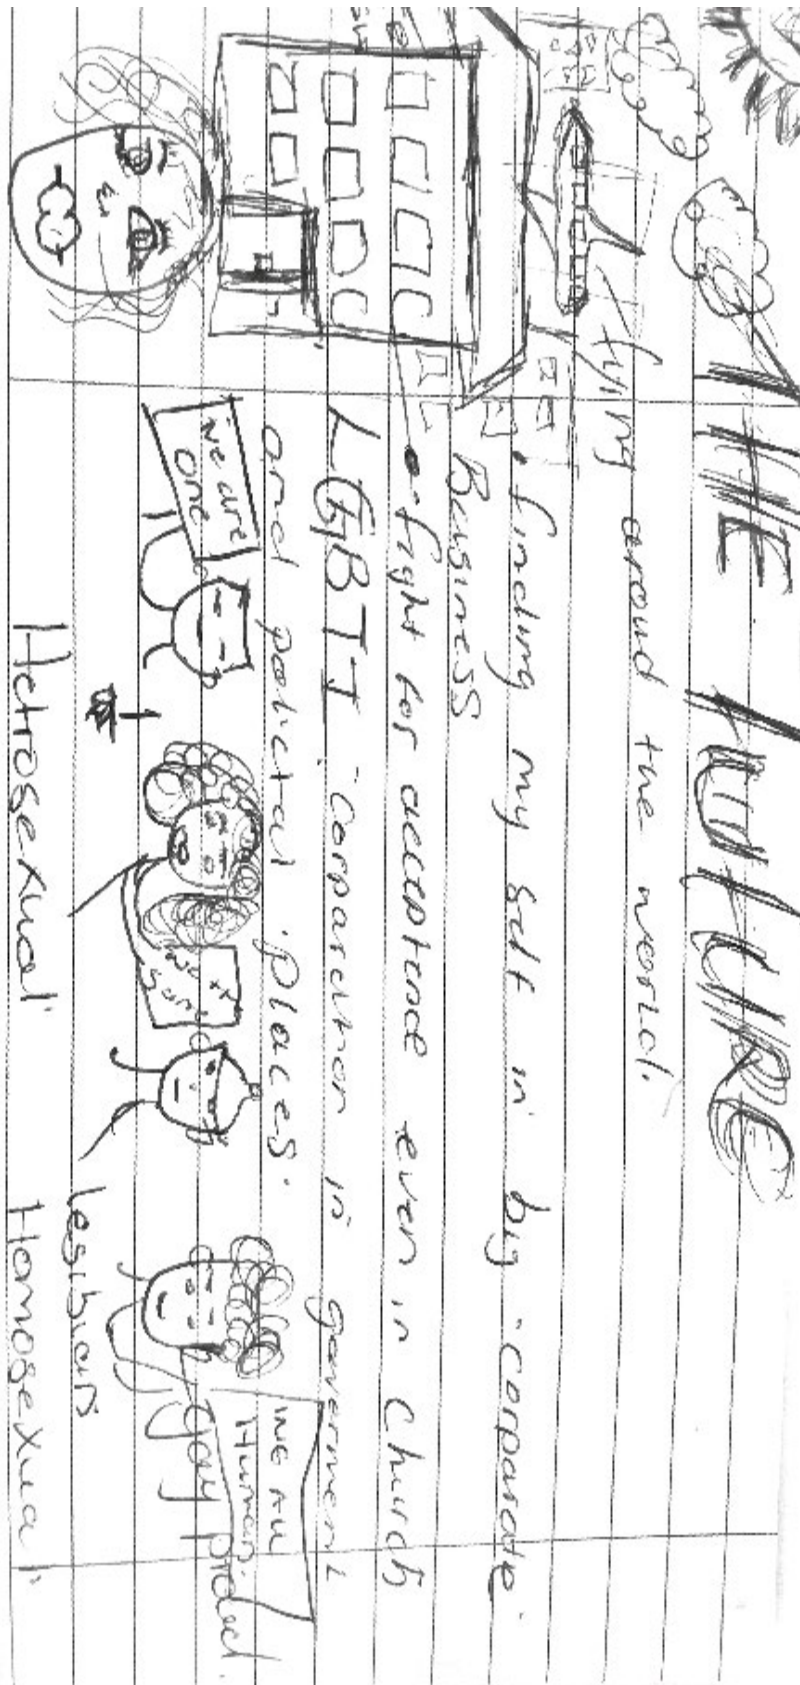 THE FUTURE
flying around the world.
• finding my self in big "corparate"
Business
• fight for acceptence even in Church
LGBTI "Corparation in goverment
and polictal places.
we are
one
WE ALL
Human.
gay proud.
Lesibian
Hetrosexual
Homosexual